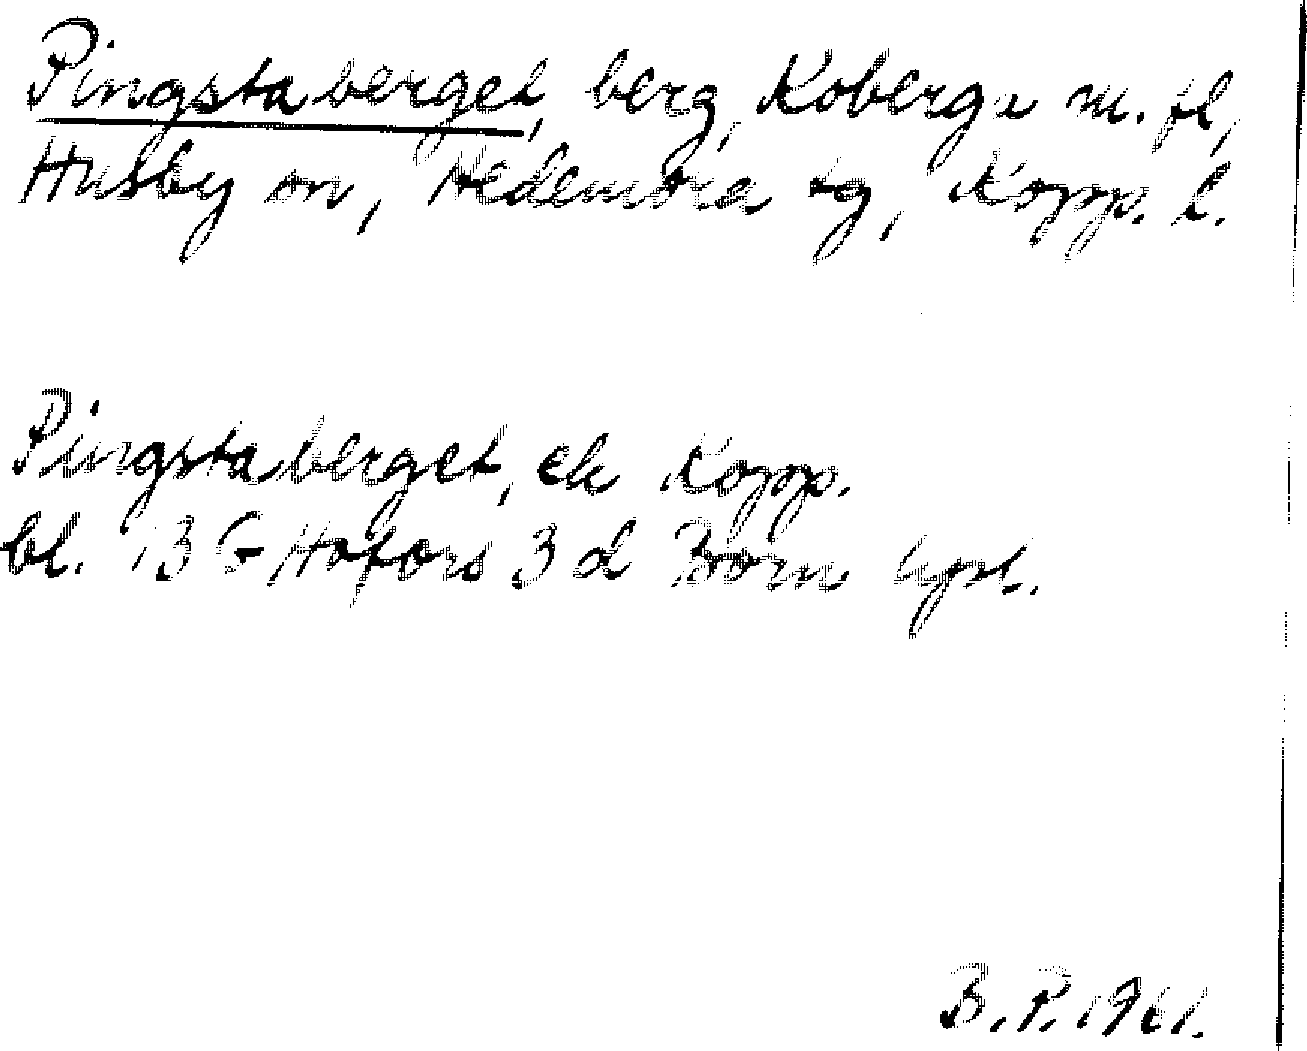 Pingstaberget, berg, Koberga m. fl,
Husby sn, Hedemora tg, Kopp. l.
Pingstaberget, ek Kopp.
bl. 13 G Hofors 3 d Born
B. P. 1961.